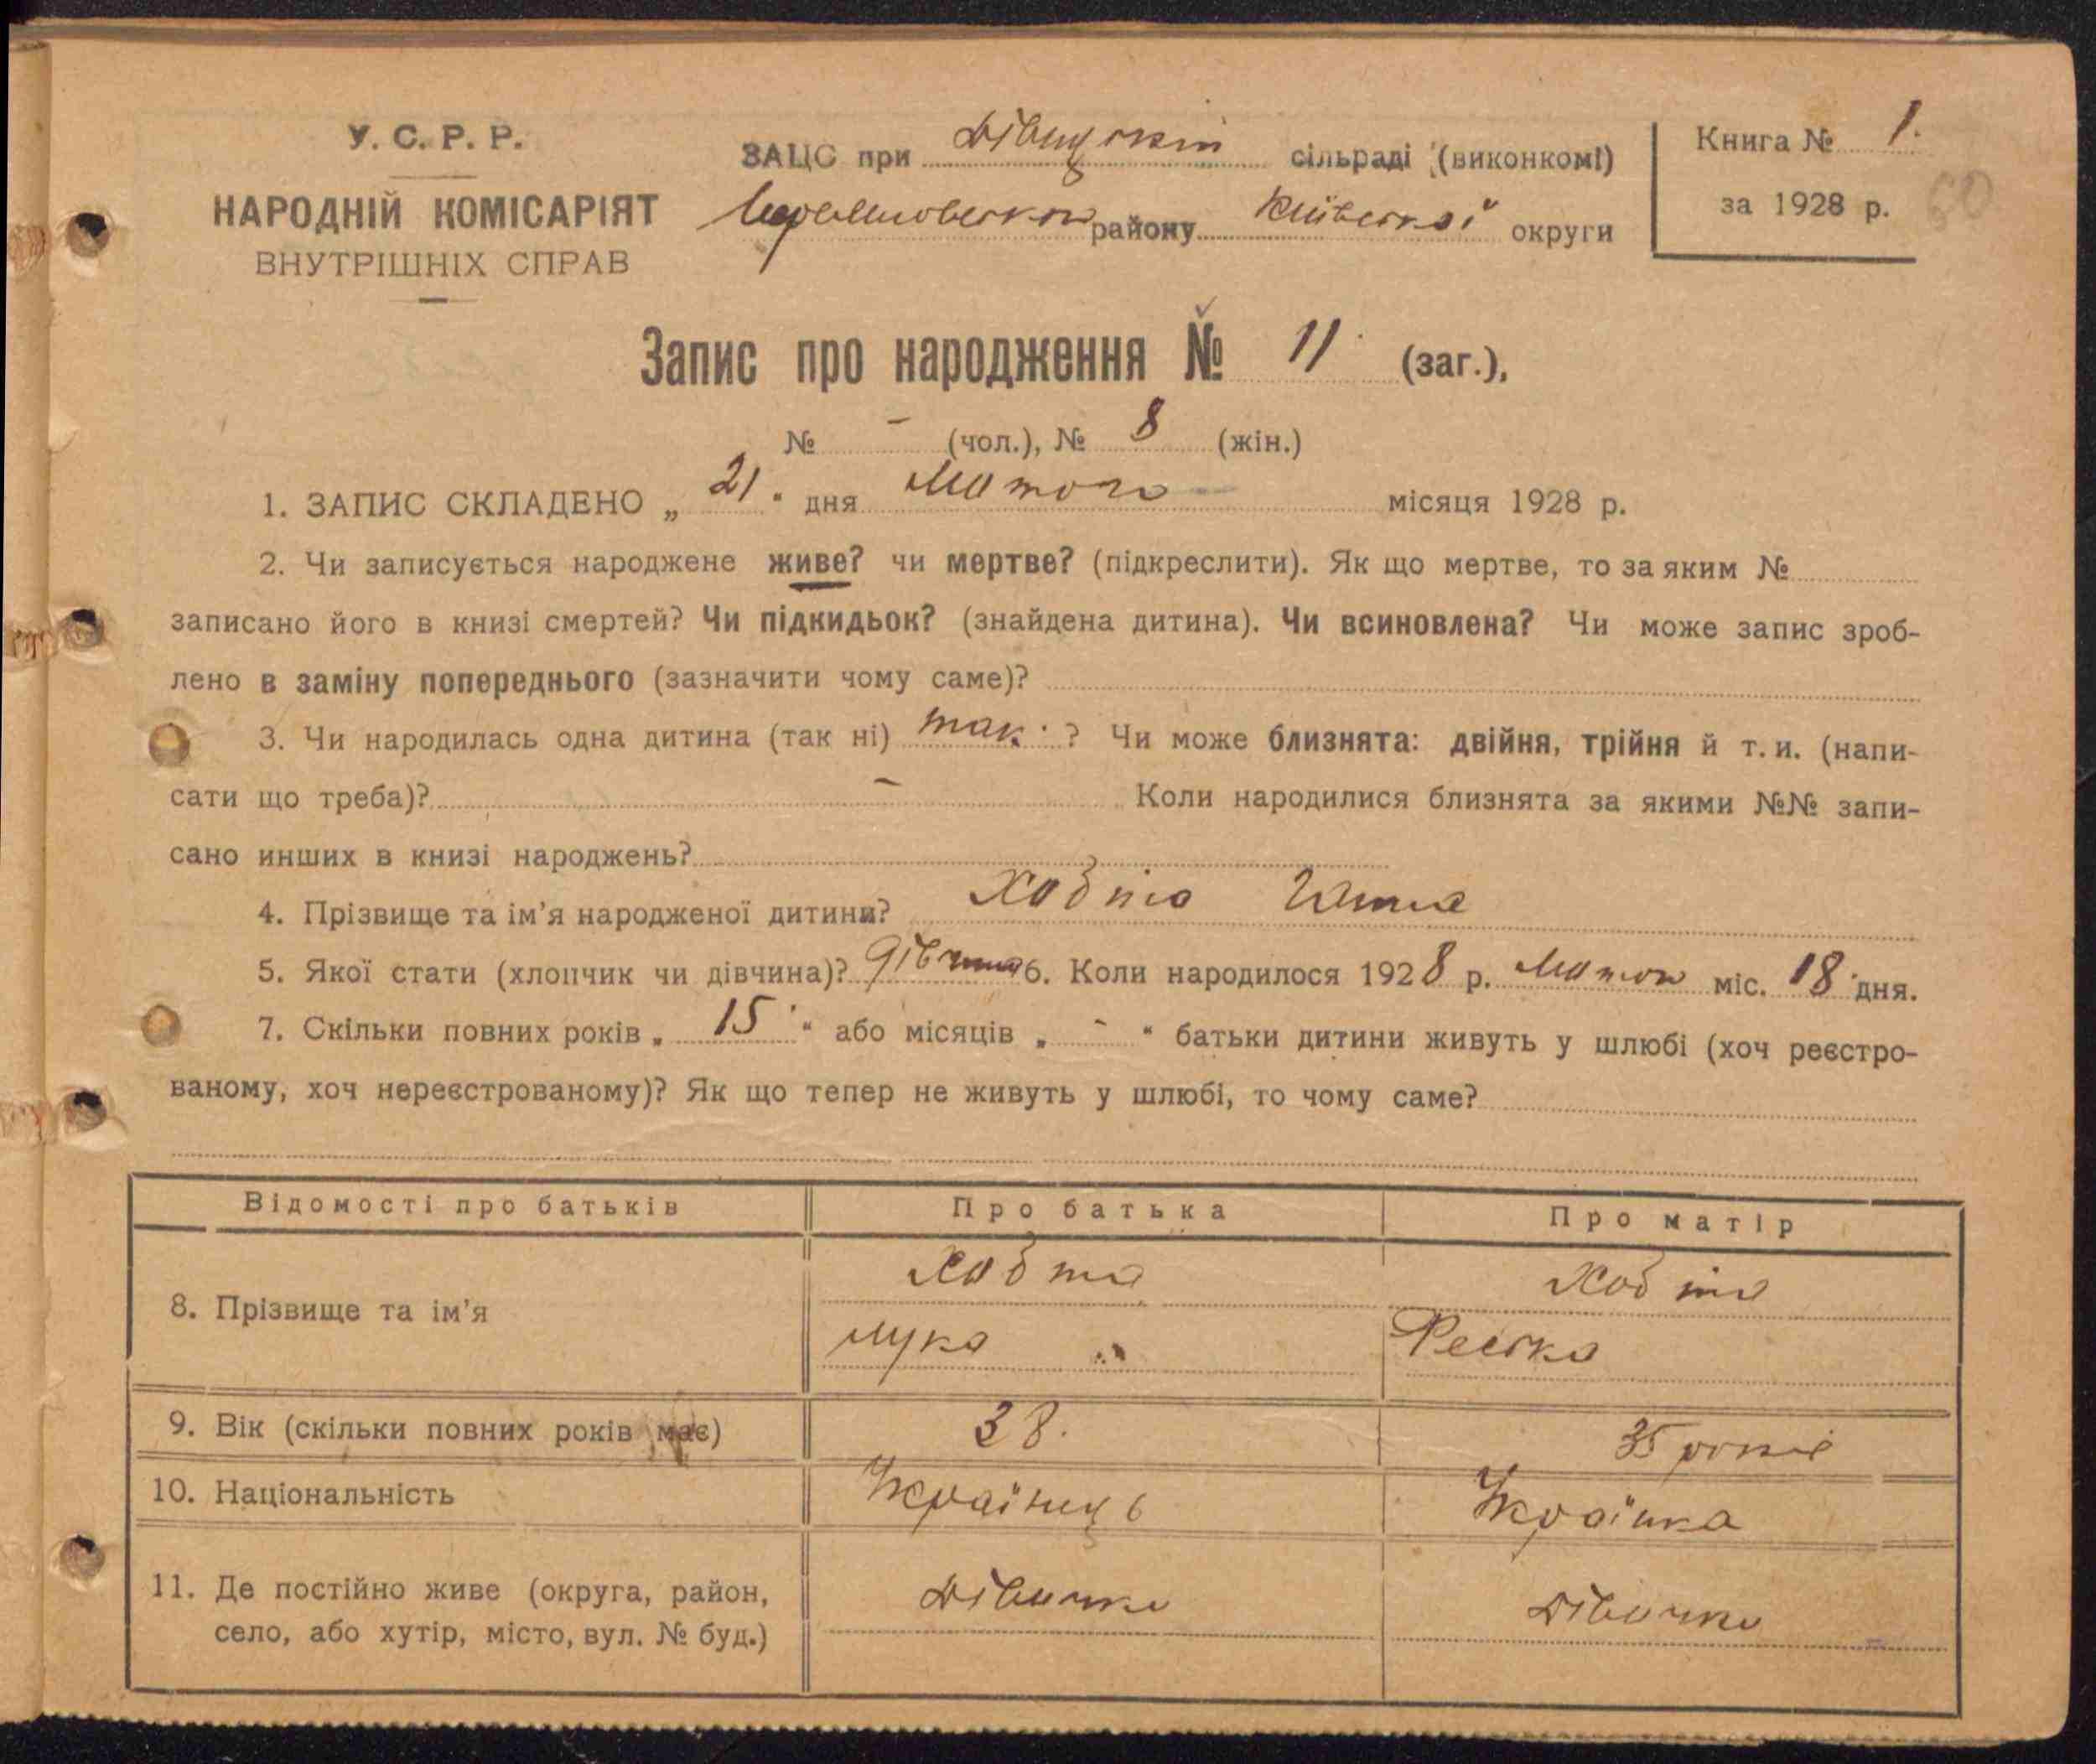 У. С. Р. Р.
НАРОДНІЙ КОМІСАРІЯТ
ВНУТРІШНІХ СПРАВ
ЗАЦС при Дівицькій сільраді (виконкомі)
району Київської округи
Книга № 1.
за 1928 р.
60
Запис про народження № 11 (заг.),
№ - (чол.), № 8 (жін.)
1. ЗАПИС СКЛАДЕНО „ 21 " дня Лютого місяця 1928 р.
2. Чи записується народжене живе? чи мертве? (підкреслити). Як що мертве, то за яким №
записано його в книзі смертей? Чи підкидьок? (знайдена дитина). Чи всиновлена? Чи може запис зроб-
лено в заміну попереднього (зазначити чому саме)?
3. Чи народилась одна дитина (так ні) так. ? Чи може близнята: двійня, трійня й т. и. (напи-
сати що треба)? - Коли народилися близнята за якими №№ запи-
сано инших в книзі народжень?
4. Прізвище та ім'я народженої дитини? Хобта Ганна
5. Якої стати (хлопчик чи дівчина)? дівчина 6. Коли народилося 1928 р. Лютого міс. 18 дня.
7. Скільки повних років „ 15 " або місяців „ - " батьки дитини живуть у шлюбі (хоч реєстро-
ваному, хоч нереєстрованому)? Як що тепер не живуть у шлюбі, то чому саме?
Відомості про батьків Про батька Про матір
8. Прізвище та ім'я
Хобта Хобта
Лука Феська
9. Вік (скільки повних років має) 38. 35 років
10. Національність Українець Українка
11. Де постійно живе (округа, район,
село, або хутір, місто, вул. № буд.)
Дівички Дівички